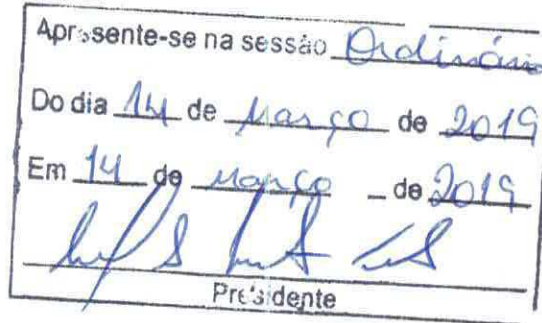 Apresente-se na sessão Ordinária
Do dia 14 de Março de 2019
Em 14 de Março de 2019
Presidente